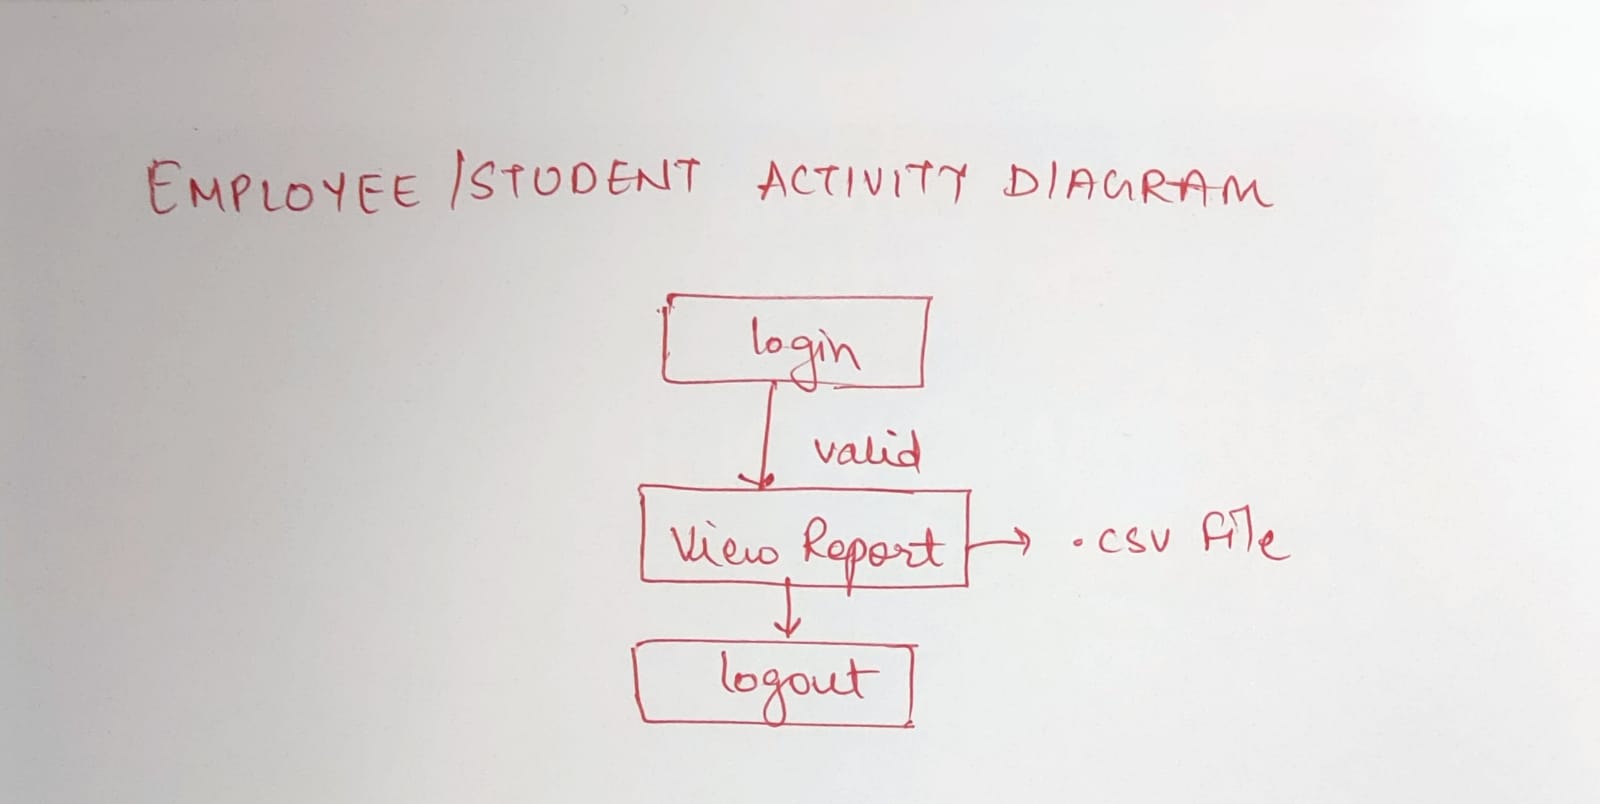 EMPLOYEE /STUDENT ACTIVITY DIAGRAM
login
valid
View Report
.csv file
logout